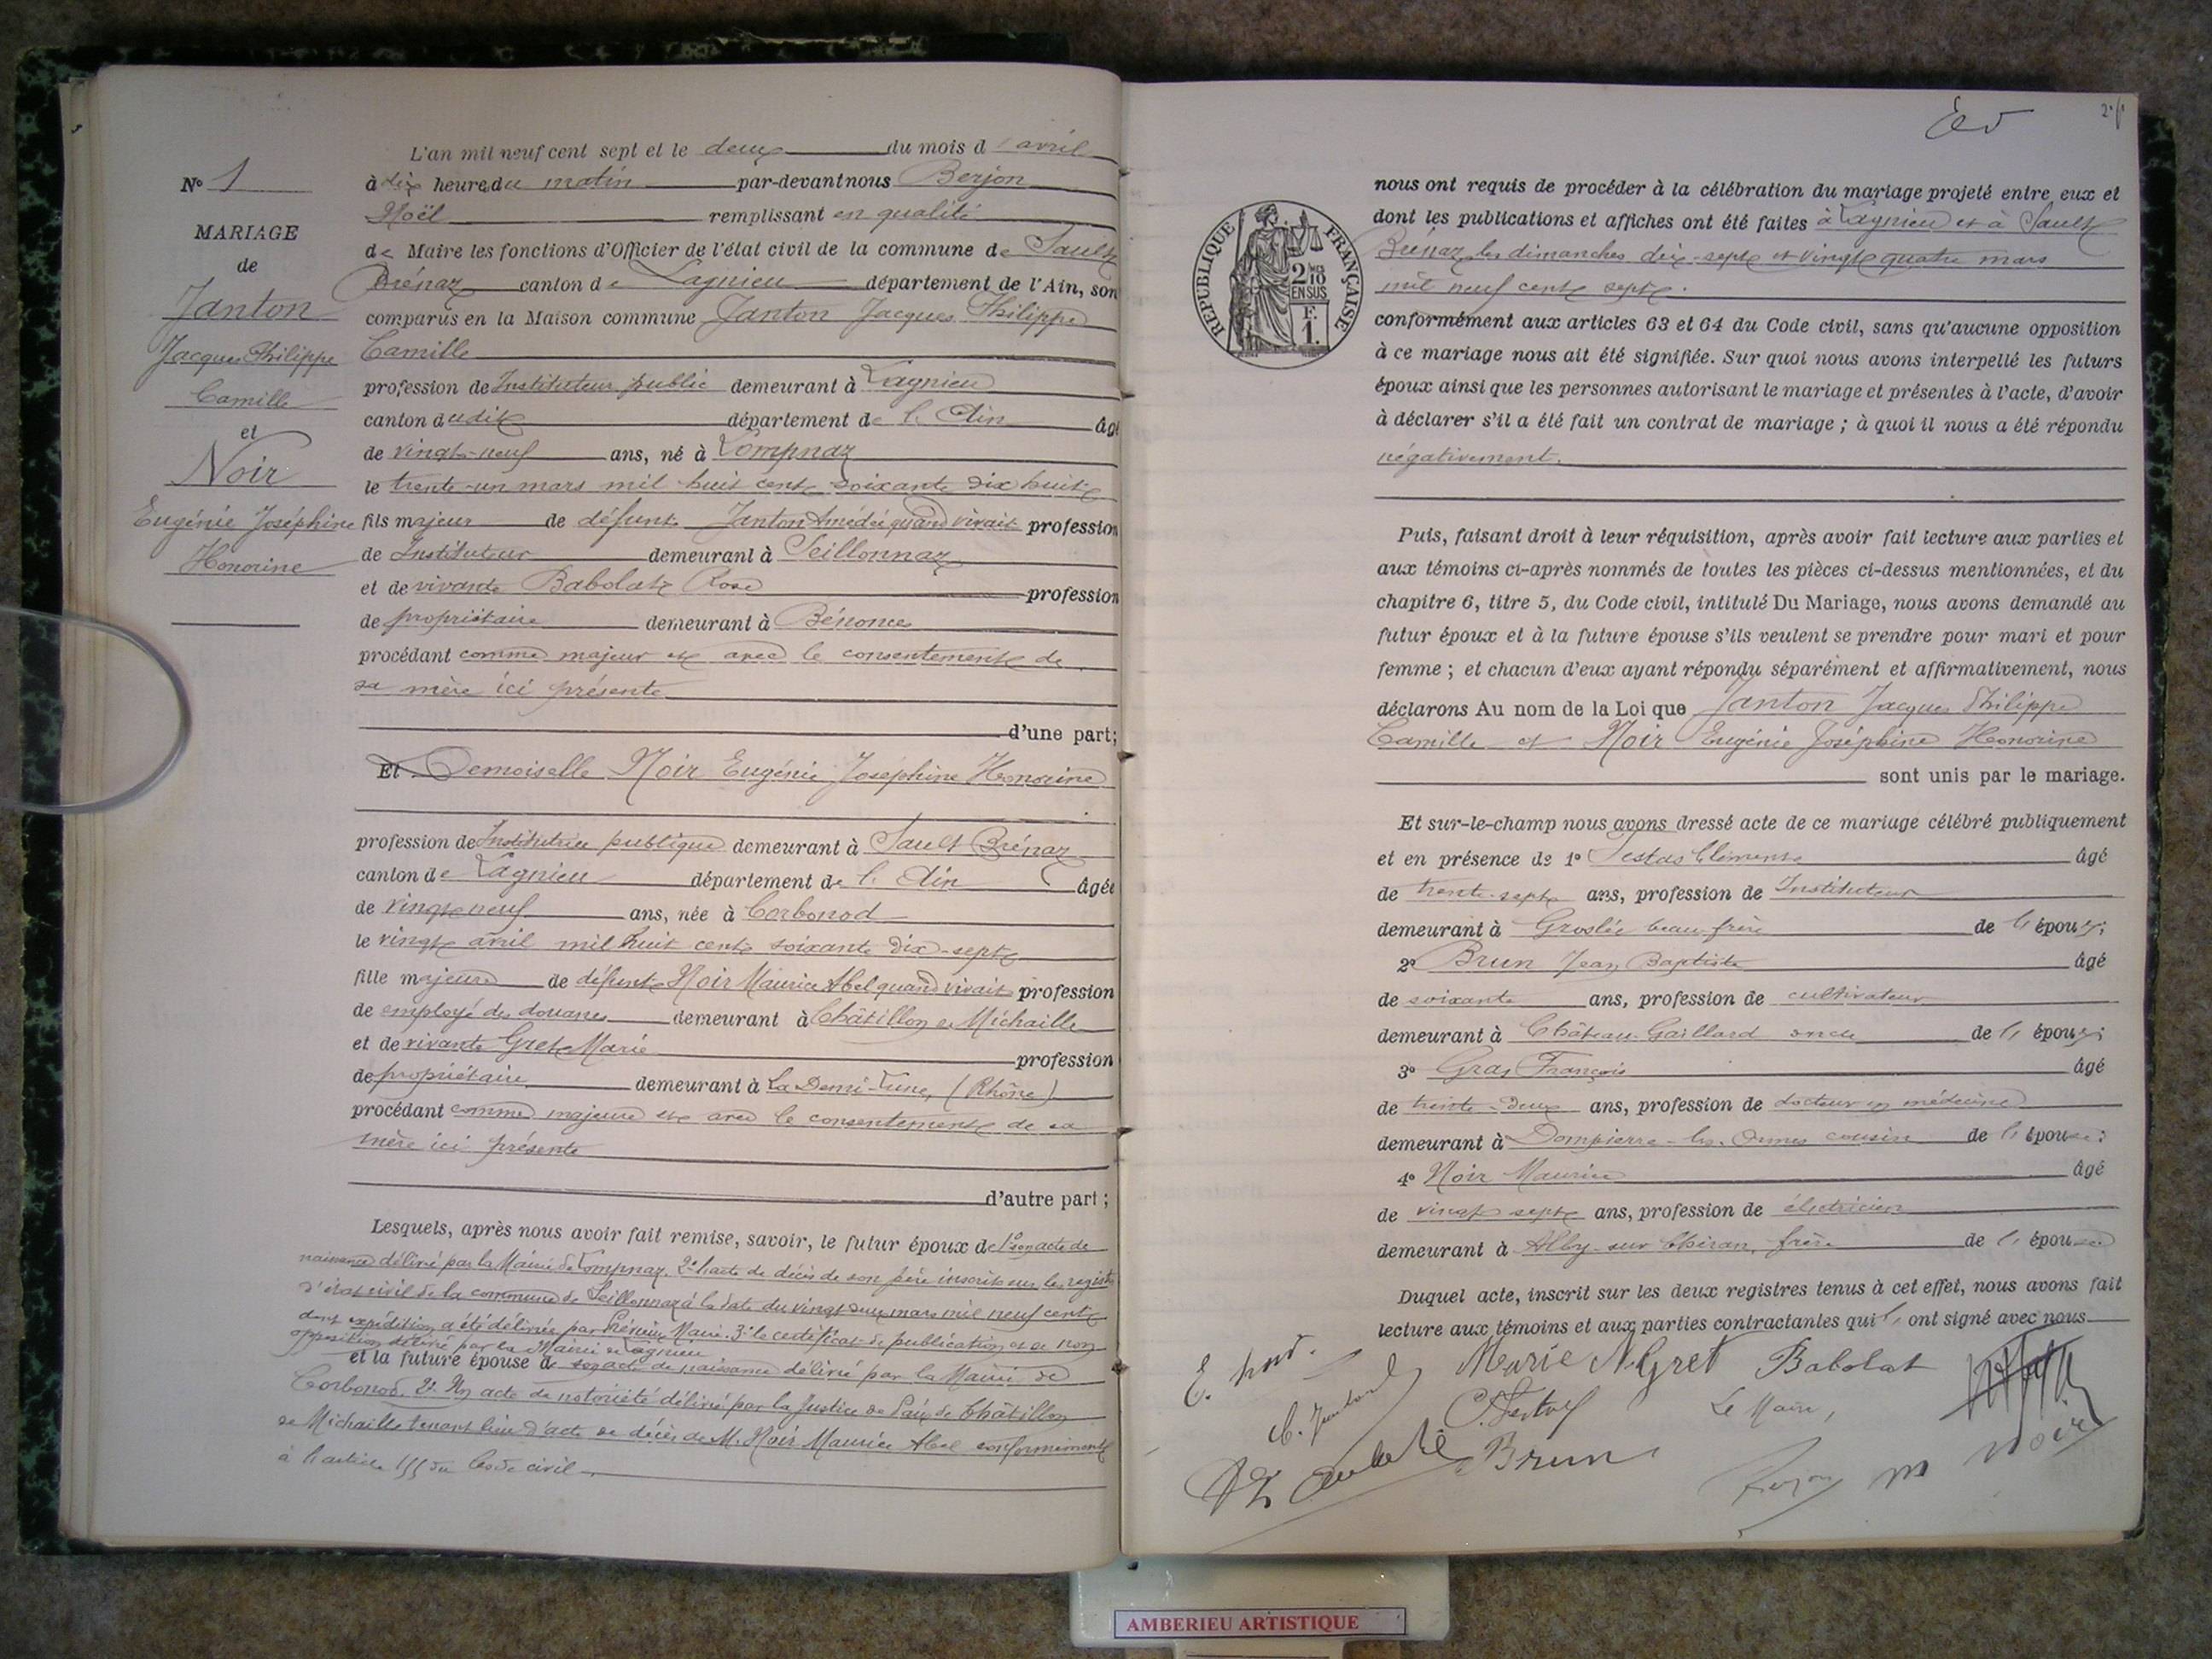 L'an mil neuf cent sept et le deux du mois d'avril
à dix heures du matin par-devant nous Berjon
Noël remplissant en qualité
de Maire les fonctions d'Officier de l'état civil de la commune de Sault
Brénaz canton de Lagnieu département de l'Ain, son
comparus en la Maison commune Janton Jacques Philippe
Camille
profession de Instituteur public demeurant à Lagnieu
canton dudit département de l'Ain âgé
de vingt-neuf ans, né à Lompnaz
le trente-un mars mil huit cent soixante dix huit
fils majeur de défunt Janton Amédée quand vivait profession
de Instituteur demeurant à Seillonnaz
et de vivante Babolat Rose profession
de propriétaire demeurant à Bénonces
procédant comme majeur et avec le consentement de
sa mère ici présente
d'une part;
Et Demoiselle Noir Eugénie Joséphine Honorine
profession de Institutrice publique demeurant à Sault Brénaz
canton de Lagnieu département de l'Ain âgée
de vingt neuf ans, née à Corbonod
le vingt avril mil huit cent soixante dix-sept
fille majeure de défunt Noir Maurice Abel quand vivait profession
de employé des douanes demeurant à Châtillon de Michaille
et de vivante Gret Marie profession
de propriétaire demeurant à La Demi-Lune, (Rhône)
procédant comme majeure et avec le consentement de sa
mère ici présente
d'autre part;
Lesquels, après nous avoir fait remise, savoir, le futur époux de 1° son acte de
naissance délivré par la Mairie de Lompnaz. 2° l'acte de décès de son père inscrit sur les registres
d'état civil de la commune de Seillonnaz à la date du vingt deux mars mil neuf cent
dont expédition a été délivrée par Mairie. 3° le certificat de publication et de non
opposition délivré par la Mairie de Lagnieu
et la future épouse de son acte de naissance délivré par la Mairie de
Corbonod. 2° Un acte de notoriété délivré par la Justice de Paix de Châtillon
de Michaille tenant lieu d'acte de décès de M. Noir Maurice Abel conformément
à l'article 155 du Code civil
N° 1
MARIAGE
de
Janton
Jacques Philippe
Camille
et
Noir
Eugénie Joséphine
Honorine
RÉPUBLIQUE FRANÇAISE
2 10MES
EN SUS
F.
1.
nous ont requis de procéder à la célébration du mariage projeté entre eux et
dont les publications et affiches ont été faites à Lagnieu et à Sault
Brénaz les dimanches dix-sept et vingt quatre mars
mil neuf cent sept.
conformément aux articles 63 et 64 du Code civil, sans qu'aucune opposition
à ce mariage nous ait été signifiée. Sur quoi nous avons interpellé les futurs
époux ainsi que les personnes autorisant le mariage et présentes à l'acte, d'avoir
à déclarer s'il a été fait un contrat de mariage; à quoi il nous a été répondu
négativement.
Puis, faisant droit à leur réquisition, après avoir fait lecture aux parties et
aux témoins ci-après nommés de toutes les pièces ci-dessus mentionnées, et du
chapitre 6, titre 5, du Code civil, intitulé Du Mariage, nous avons demandé au
futur époux et à la future épouse s'ils veulent se prendre pour mari et pour
femme; et chacun d'eux ayant répondu séparément et affirmativement, nous
déclarons Au nom de la Loi que Janton Jacques Philippe
Camille et Noir Eugénie Joséphine Honorine
sont unis par le mariage.
Et sur-le-champ nous avons dressé acte de ce mariage célébré publiquement
et en présence de 1° Testas Clément âgé
de trente-sept ans, profession de Instituteur
demeurant à Groslée beau-frère de l'époux;
2° Brun Jean Baptiste âgé
de soixante ans, profession de cultivateur
demeurant à Château-Gaillard oncle de l'époux;
3° Gras François âgé
de trente-deux ans, profession de docteur en médecine
demeurant à Dompierre-les-Ormes cousin de l'épouse;
4° Noir Maurice âgé
de vingt sept ans, profession de électricien
demeurant à Alby-sur Chéran, frère de l'épouse
Duquel acte, inscrit sur les deux registres tenus à cet effet, nous avons fait
lecture aux témoins et aux parties contractantes qui ont signé avec nous
Marie Gret Babolat
C. Janton
C. Testas
Le Maire,
Brun
M Noir
AMBERIEU ARTISTIQUE